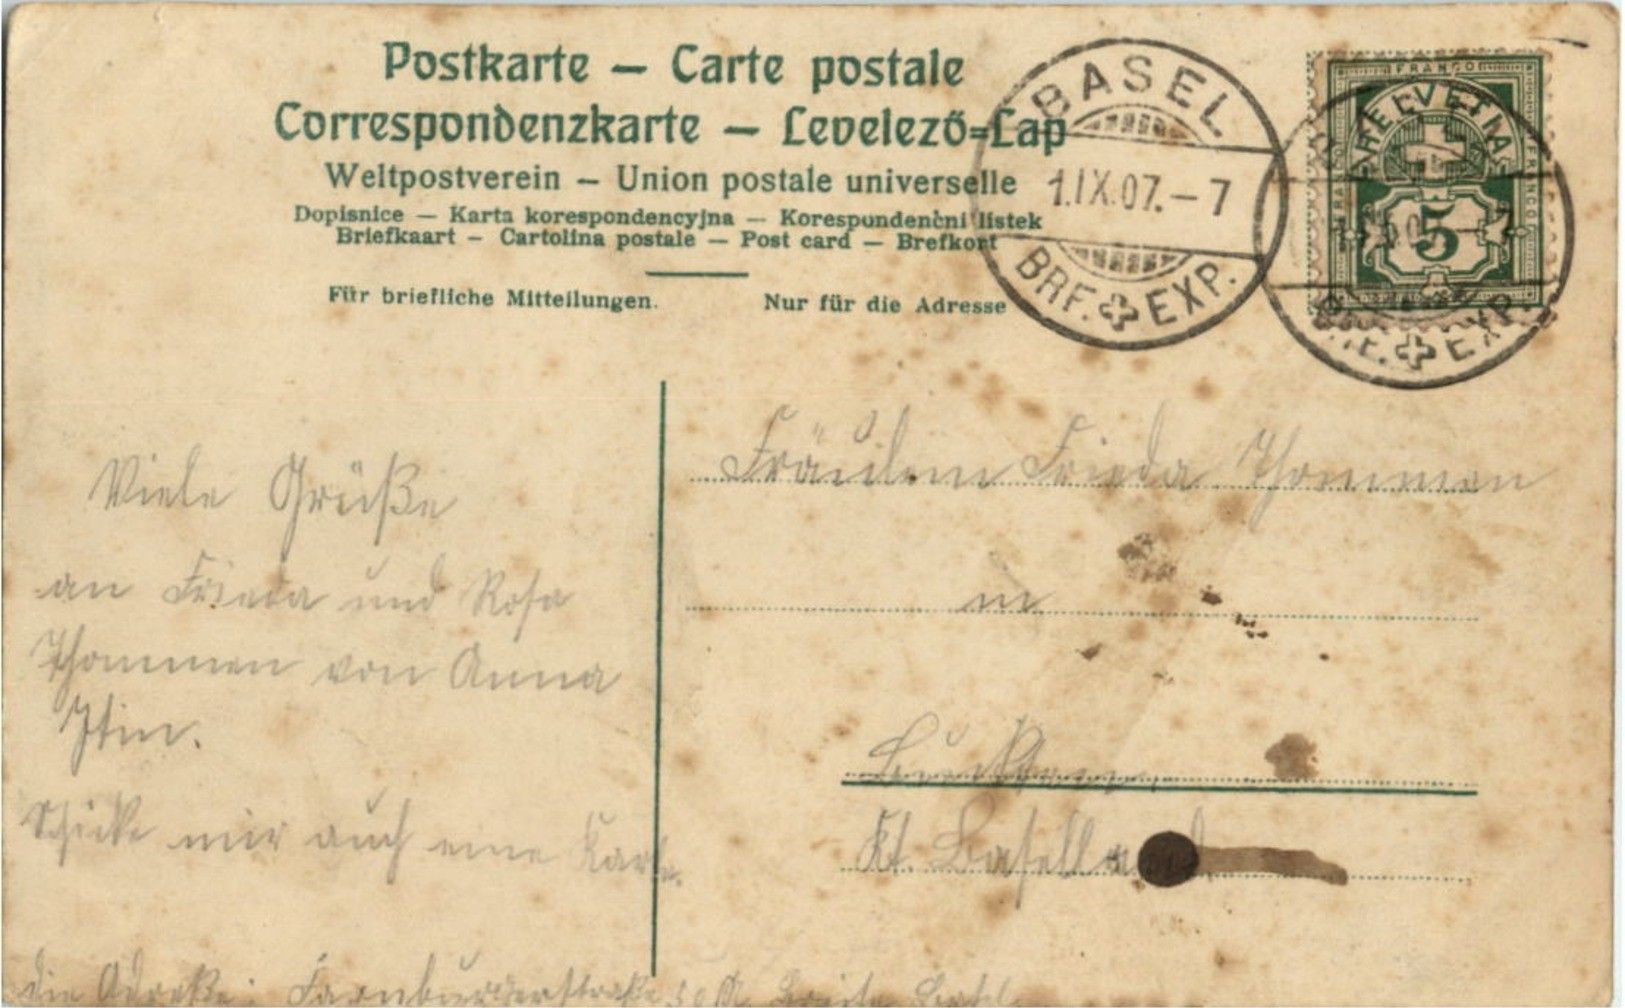 Postkarte – Carte postale
Correspondenzkarte – Levelező=Lap
Weltpostverein – Union postale universelle
Dopisnice – Karta korespondencyjna – Korespondenční listek
Briefkaart – Cartolina postale – Post card – Brefkort
Für briefliche Mitteilungen.
Nur für die Adresse
BASEL
1.IX.07.–7
BRF. EXP.
FRANCO
HELVETIA
FRANCO
FRANCO
5
BRF. EXP.
Fräulein Frieda Thommen
in
Kt. Baselland
Viele Grüße
an Frieda und Rosa
Thommen von Anna
Itin.
Schicke mir auch eine Karte.
die Adreße: Farnburgerstraße 50 Breite Basel.